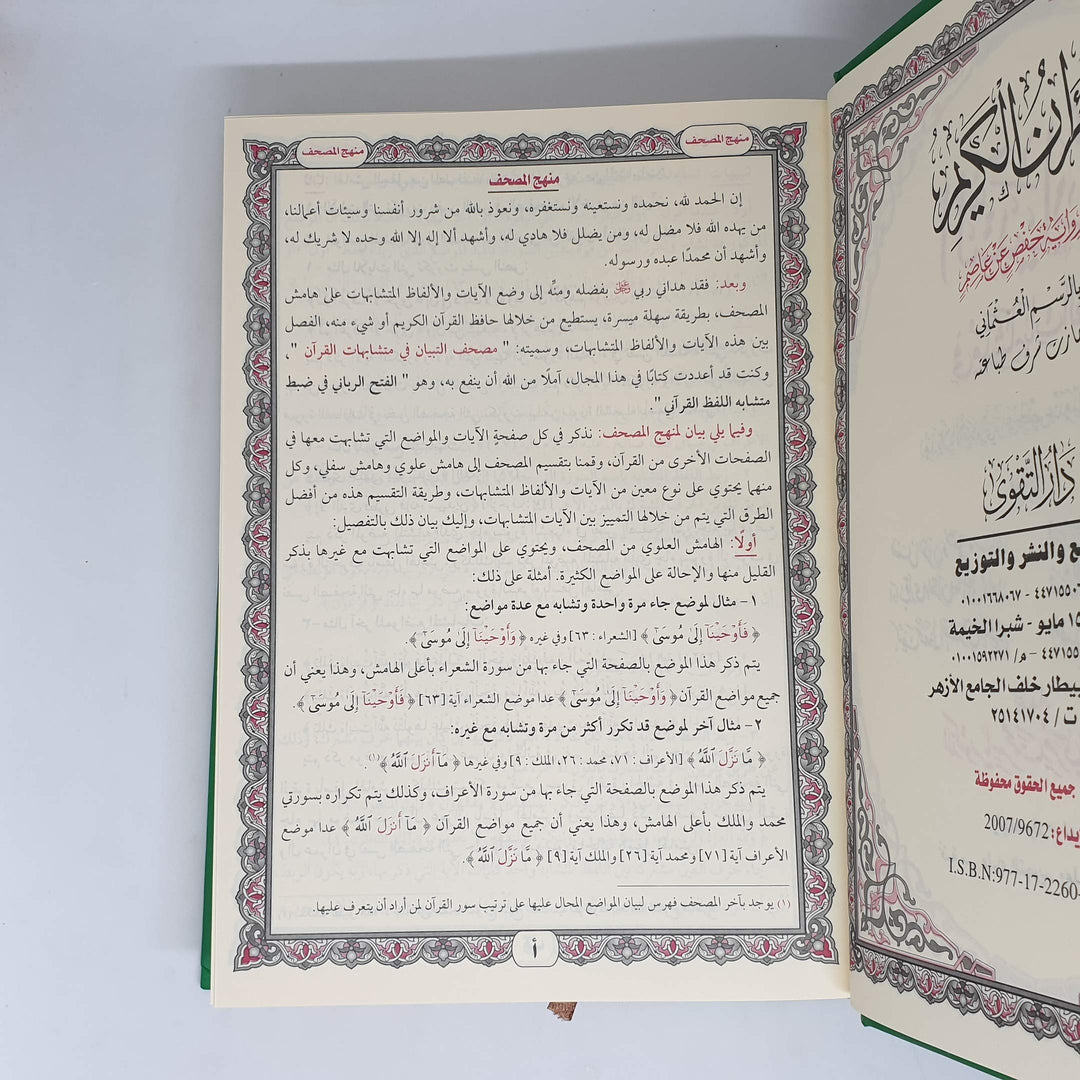 منهج المصحف
منهج المصحف
منهج المصحف
إن الحمد لله، نحمده ونستعينه ونستغفره، ونعوذ بالله من شرور أنفسنا وسيئات أعمالنا،
من يهده الله فلا مضل له، ومن يضلل فلا هادي له، وأشهد ألا إله إلا الله وحده لا شريك له،
وأشهد أن محمدًا عبده ورسوله.
وبعد: فقد هداني ربي ﷻ بفضله ومنِّه إلى وضع الآيات والألفاظ المتشابهات على هامش
المصحف، بطريقة سهلة ميسرة، يستطيع من خلالها حافظ القرآن الكريم أو شيء منه، الفصل
بين هذه الآيات والألفاظ المتشابهات، وسميته: " مصحف التبيان في متشابهات القرآن "،
وكنت قد أعددت كتابًا في هذا المجال، آملًا من الله أن ينفع به، وهو " الفتح الرباني في ضبط
متشابه اللفظ القرآني ".
وفيما يلي بيان لمنهج المصحف: نذكر في كل صفحةٍ الآيات والمواضع التي تشابهت معها في
الصفحات الأخرى من القرآن، وقمنا بتقسيم المصحف إلى هامش علوي وهامش سفلي، وكل
منهما يحتوي على نوع معين من الآيات والألفاظ المتشابهات، وطريقة التقسيم هذه من أفضل
الطرق التي يتم من خلالها التمييز بين الآيات المتشابهات، وإليك بيان ذلك بالتفصيل:
أولًا: الهامش العلوي من المصحف، ويحتوي على المواضع التي تشابهت مع غيرها بذكر
القليل منها والإحالة على المواضع الكثيرة. أمثلة على ذلك:
١- مثال لموضع جاء مرة واحدة وتشابه مع عدة مواضع:
﴿ فَأَوْحَيْنَآ إِلَىٰ مُوسَىٰٓ ﴾ [الشعراء : ٦٣] وفي غيره ﴿ وَأَوْحَيْنَآ إِلَىٰ مُوسَىٰٓ ﴾.
يتم ذكر هذا الموضع بالصفحة التي جاء بها من سورة الشعراء بأعلى الهامش، وهذا يعني أن
جميع مواضع القرآن ﴿ وَأَوْحَيْنَآ إِلَىٰ مُوسَىٰٓ ﴾ عدا موضع الشعراء آية [٦٣] ﴿ فَأَوْحَيْنَآ إِلَىٰ مُوسَىٰٓ ﴾.
٢- مثال آخر لموضع قد تكرر أكثر من مرة وتشابه مع غيره:
﴿ مَّا نَزَّلَ ٱللَّهُ ﴾ [الأعراف : ٧١، محمد : ٢٦، الملك : ٩] وفي غيرها ﴿ مَآ أَنزَلَ ٱللَّهُ ﴾(١).
يتم ذكر هذا الموضع بالصفحة التي جاء بها من سورة الأعراف، وكذلك يتم تكراره بسورتي
محمد والملك بأعلى الهامش، وهذا يعني أن جميع مواضع القرآن ﴿ مَآ أَنزَلَ ٱللَّهُ ﴾ عدا موضع
الأعراف آية [٧١] ومحمد آية [٢٦] والملك آية [٩] ﴿ مَّا نَزَّلَ ٱللَّهُ ﴾.
(١) يوجد بآخر المصحف فهرس لبيان المواضع المحال عليها على ترتيب سور القرآن لمن أراد أن يتعرف عليها.
أ
الكريم
حفص عن عاصم
بالرسم العثماني
دار التقوى
والنشر والتوزيع
٠١٠٠١٦٦٨٠٦٧
مايو - شبرا الخيمة
م/ ٠١٠٠١٥٩٢٢٧١
خلف الجامع الأزهر
ت / ٢٥١٤١٧٠٤
جميع الحقوق محفوظة
2007/9672
I.S.B.N:977-17-2260-